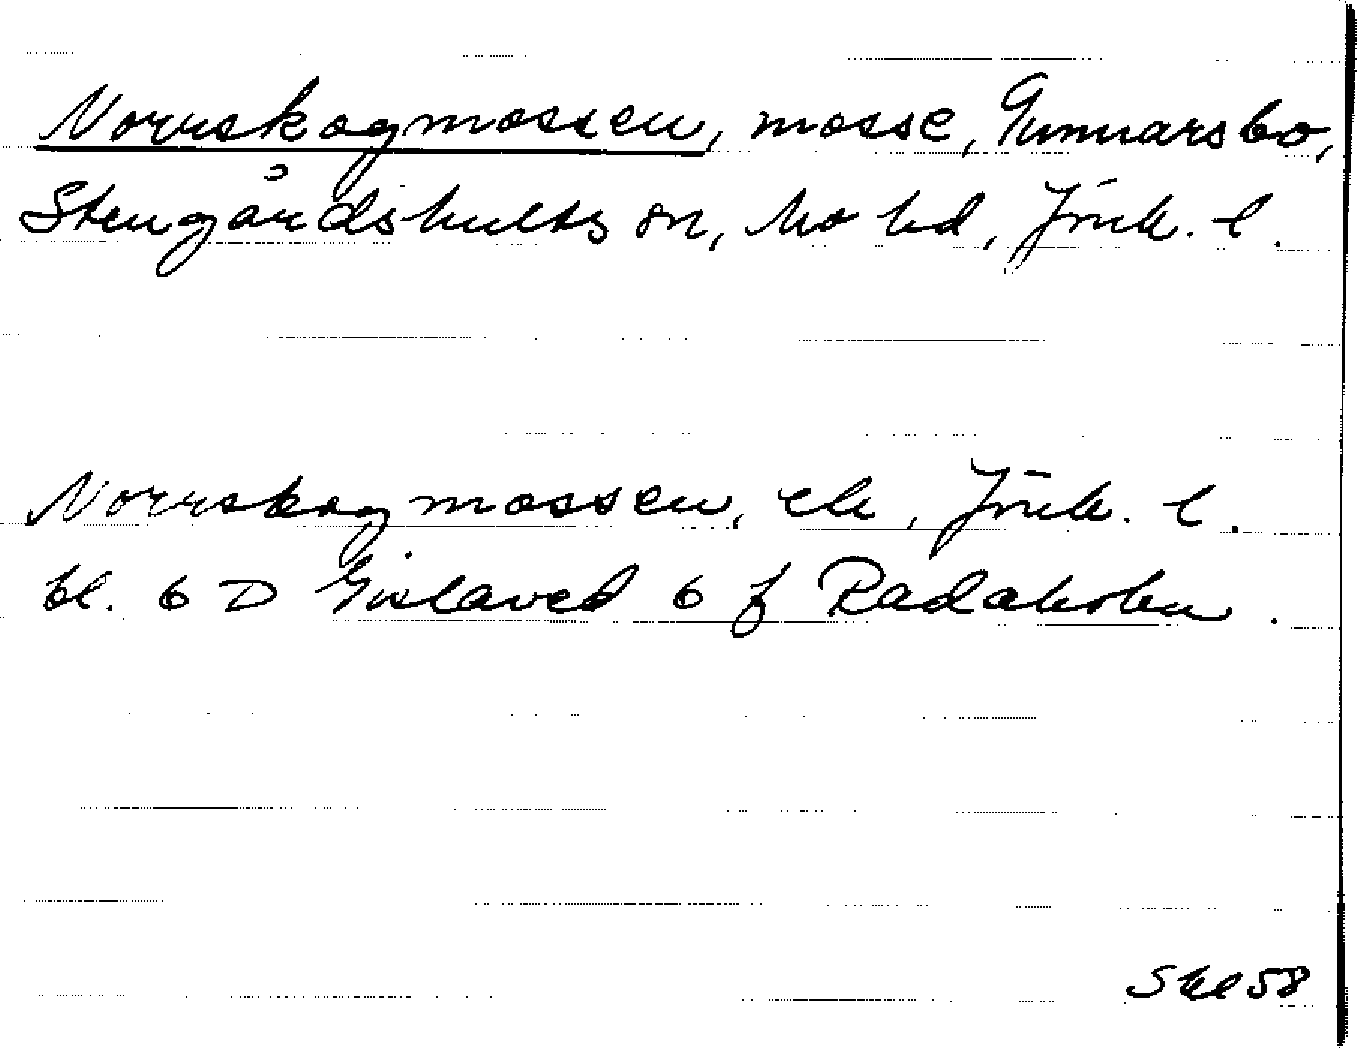 Norrskogmossen, mosse, Gunnarsbo,
Stengårdshults sn, Mo hd, Jönk. l.
Norrskogmossen, ek, Jönk. l.
bl. 6 D Gislaved 6 f Radaholm.
58